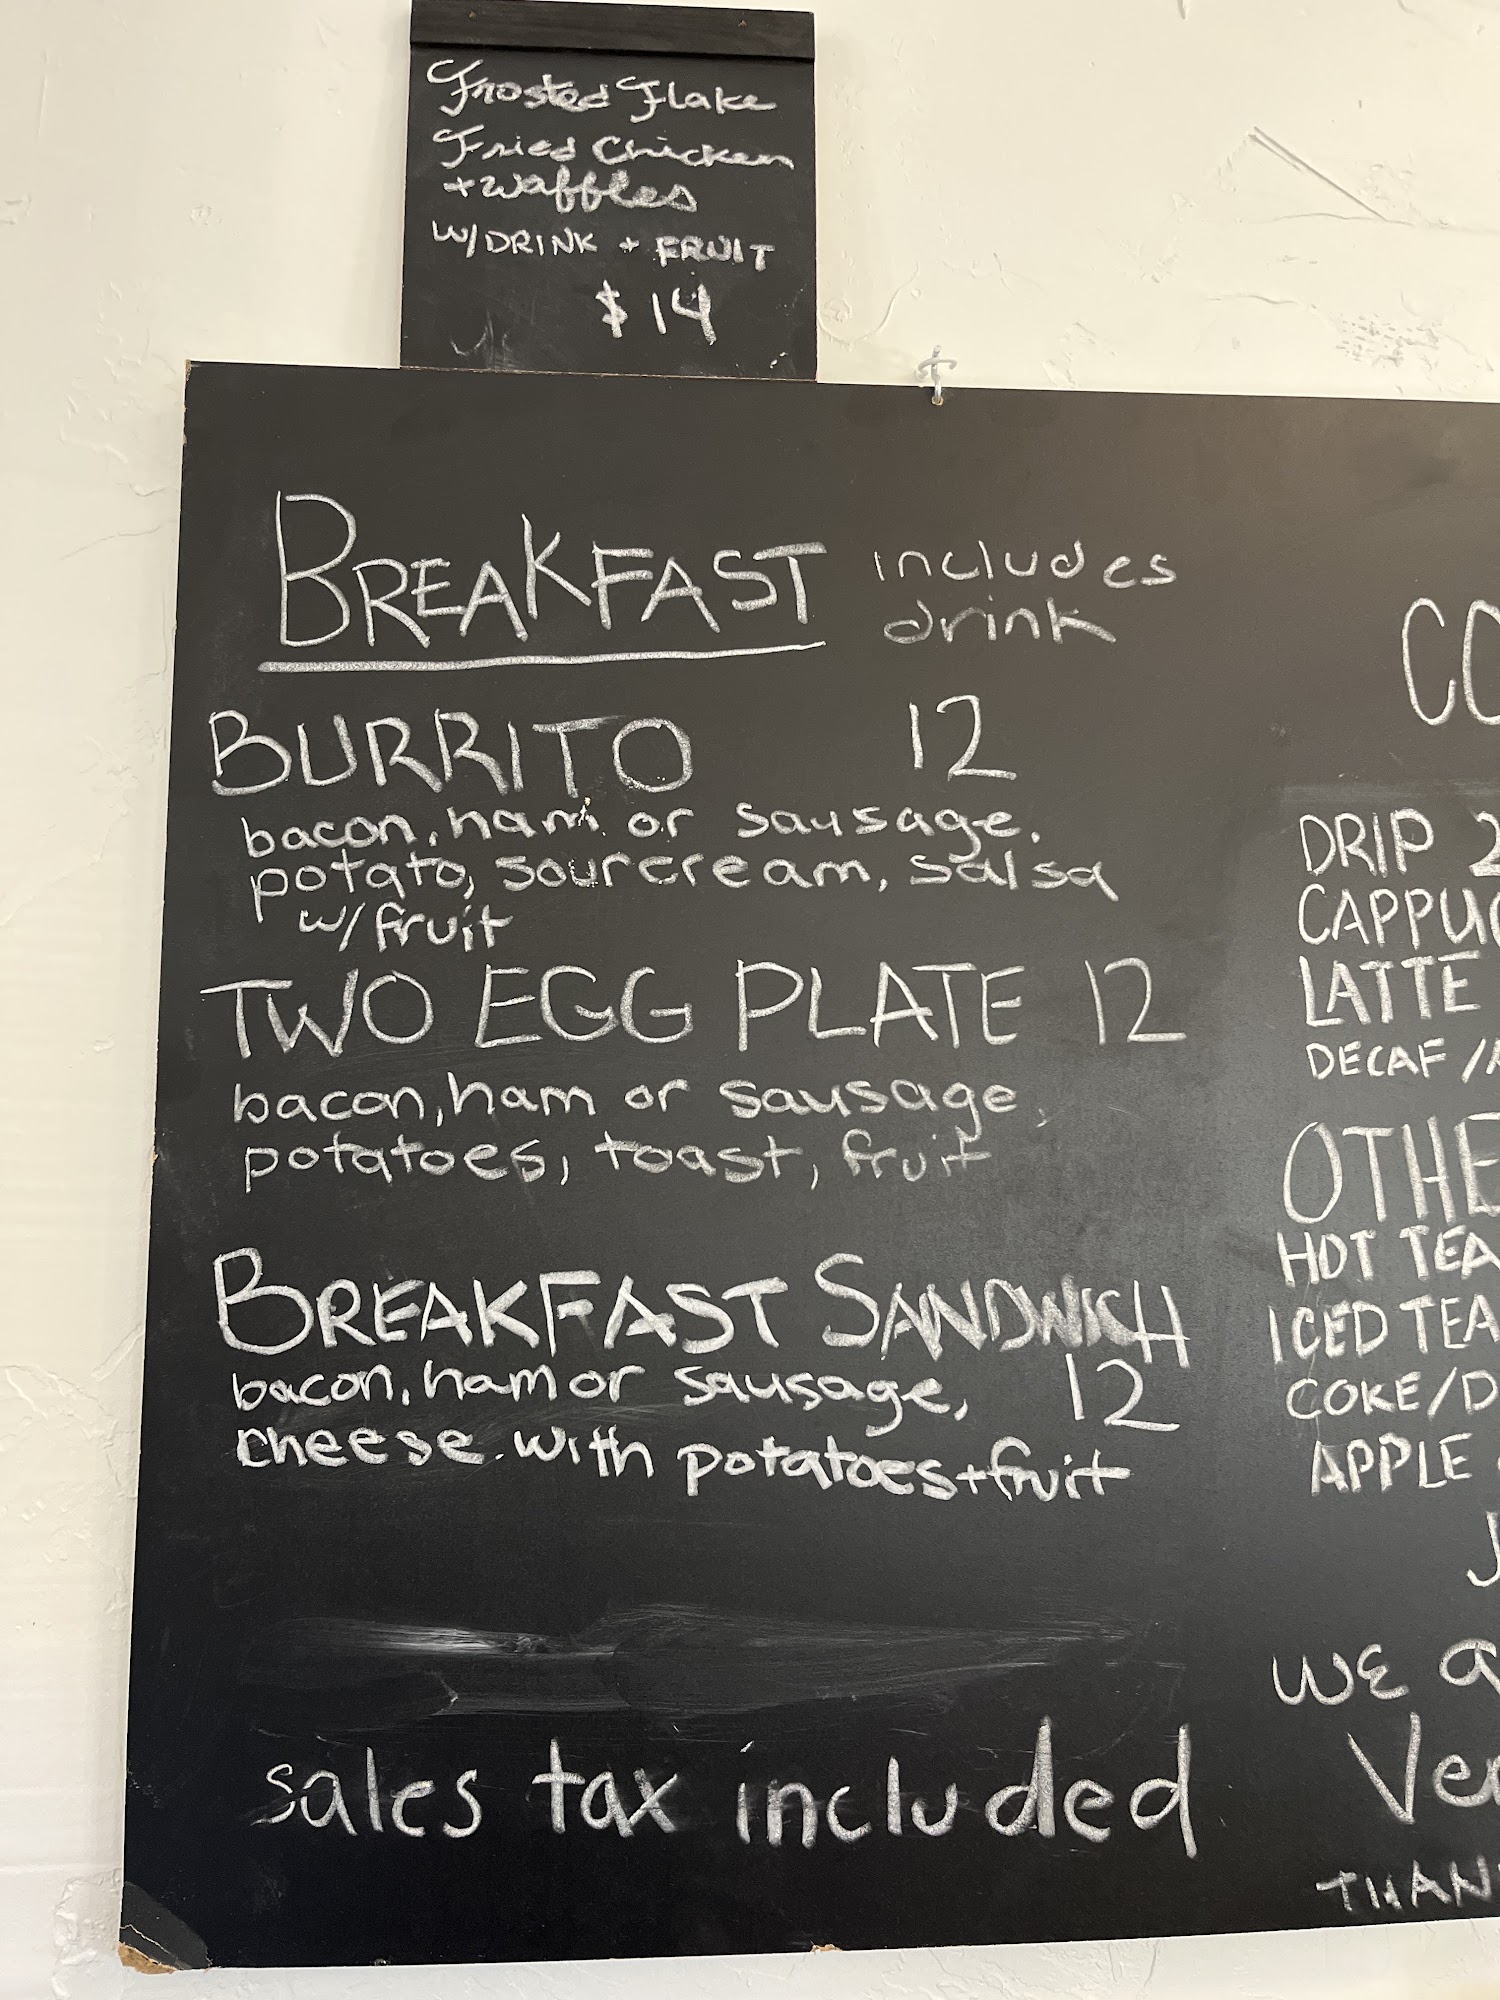 Frosted Flake
Fried Chicken
+ waffles
W/DRINK + FRUIT
$14
BREAKFAST includes
drink
BURRITO 12
bacon, ham or sausage.
potato, sour cream, salsa
w/fruit
TWO EGG PLATE 12
bacon, ham or sausage
potatoes, toast, fruit
BREAKFAST SANDWICH
bacon, ham or sausage, 12
cheese. with potatoes + fruit
sales tax included
CO
DRIP 2
CAPPUC
LATTE
DECAF /
OTHE
HOT TEA
ICED TEA
COKE/D
APPLE
J
WE a
Ven
THAN